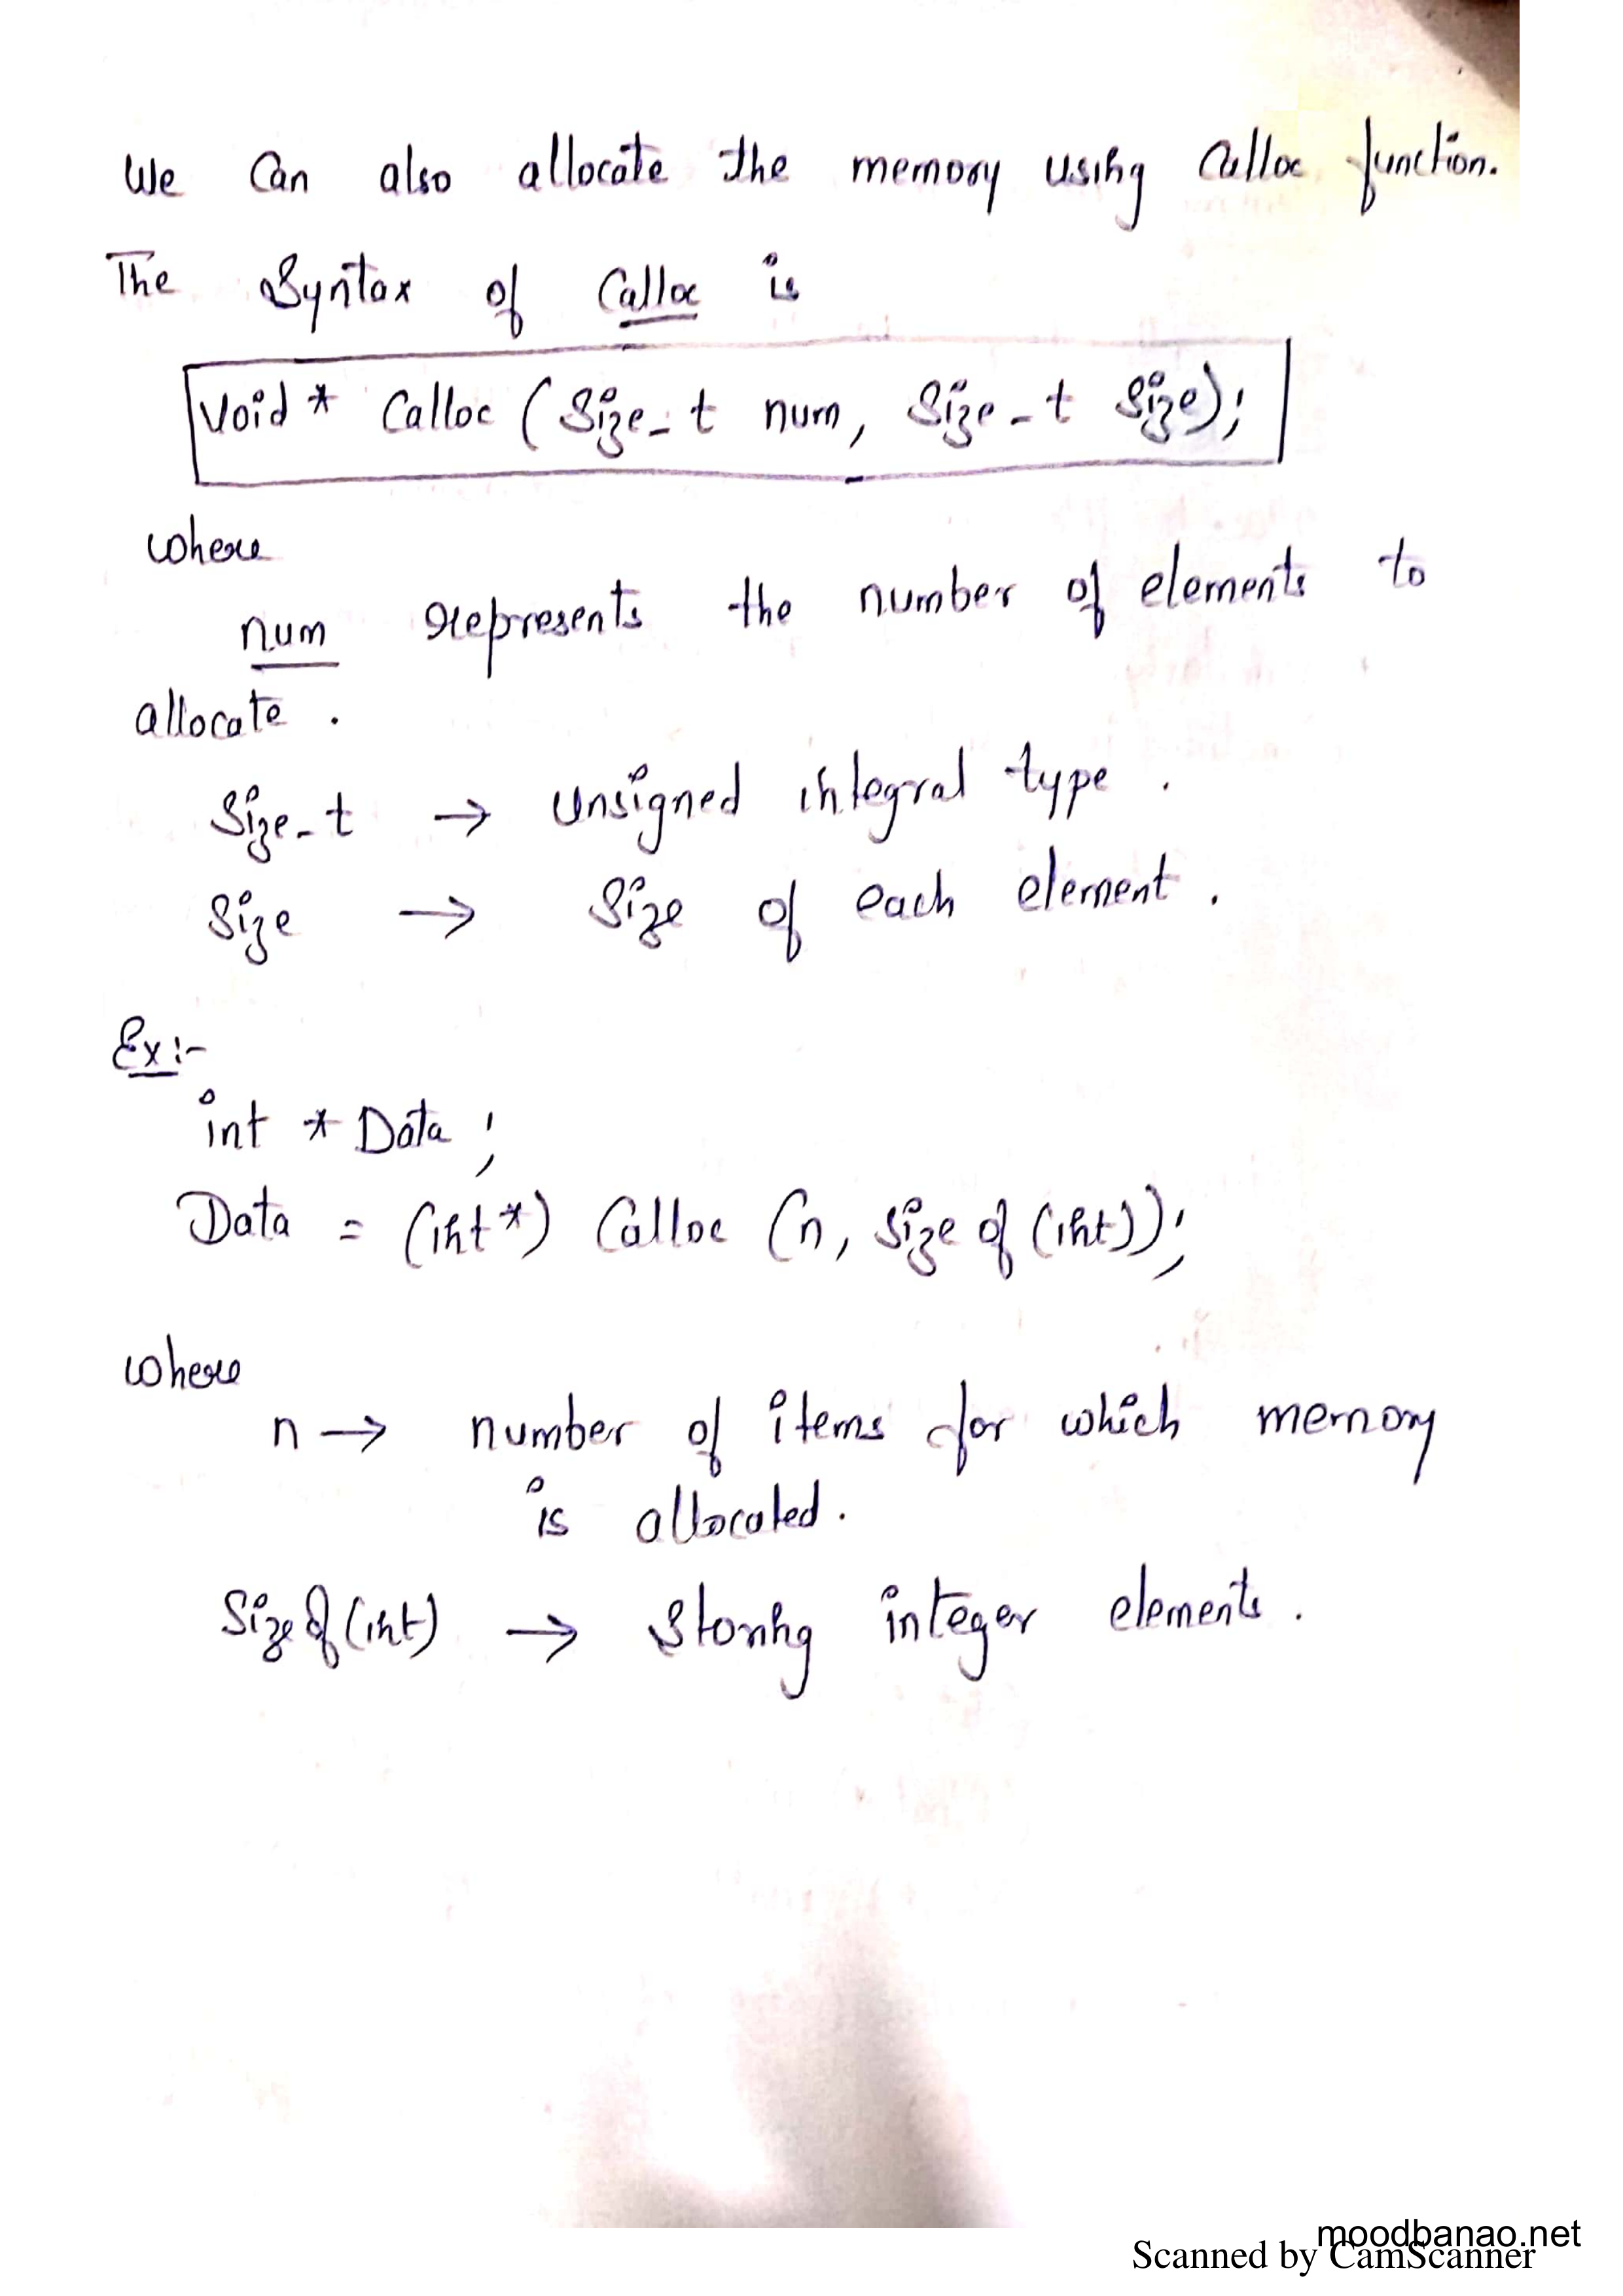 We Can also allocate the memory using Calloc function.
The Syntax of Calloc is
Void * Calloc (Size_t num, Size_t Size);
where
num represents the number of elements to
allocate.
Size_t → unsigned integral type.
Size → Size of each element.
Ex:-
int * Data;
Data = (int*) Calloc (n, Size of (int));
where
n → number of items for which memory
is allocated.
Size of (int) → Storing integer elements.
moodbanao.net
Scanned by CamScanner